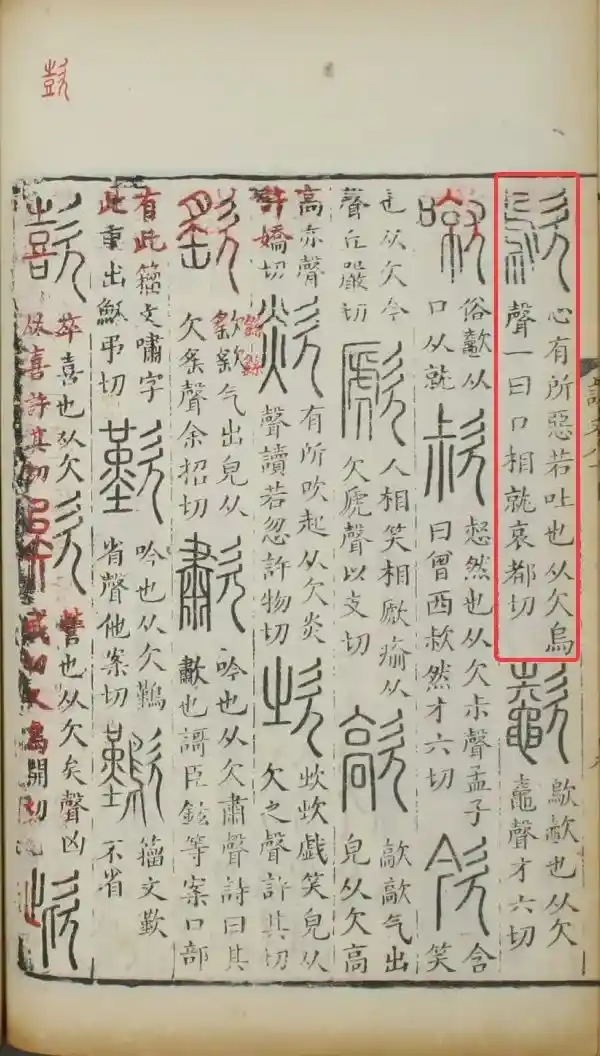 歍
心有所惡若吐也从欠烏
聲一曰口相就哀都切
𣤶
歍𣤶也从欠
鼀聲才六切
噈
俗𣤶从
口从就
㰗
惄然也从欠尗聲孟子
曰曾西㰗然才六切
㰦
含
笑
也从欠今
聲丘嚴切
歋
人相笑相歋瘉从
欠虒聲以支切
歊
歊歊气出
皃从欠高
高亦聲
許嬌切
欻
有所吹起从欠炎
聲讀若忽許物切
㰞
㰞㰞戲笑皃从
欠之聲許其切
气出皃从
欠䍃聲余招切
歗
吟也从欠肅聲詩曰其
歗也謌臣鉉等案口部
有此籀文嘯字
此重出穌弔切
歎
吟也从欠鷬
省聲他案切
籀文歎
不省
歖
卒喜也从欠
从喜許其切
欸
訾也从欠矣聲凶
戒切又烏開切